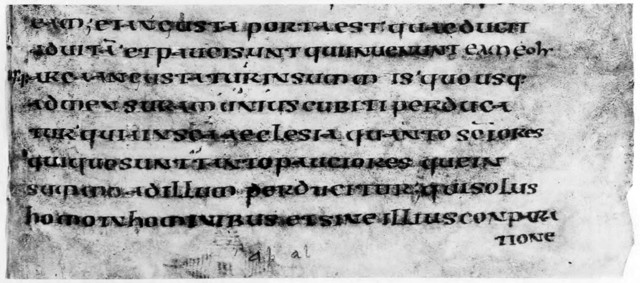 eam; et angusta porta est quae ducit
ad uitā et pauci sunt qui inueniunt eam
arca angustatur in summis quousq·
ad mensuram unius cubiti perduca
tur qui in sca aeclesia quanto sciores
quiquo sunt tanto pauciores que in
summo ad illum perducitur qui solus
homo in hominibus et sine illius conpara
tione